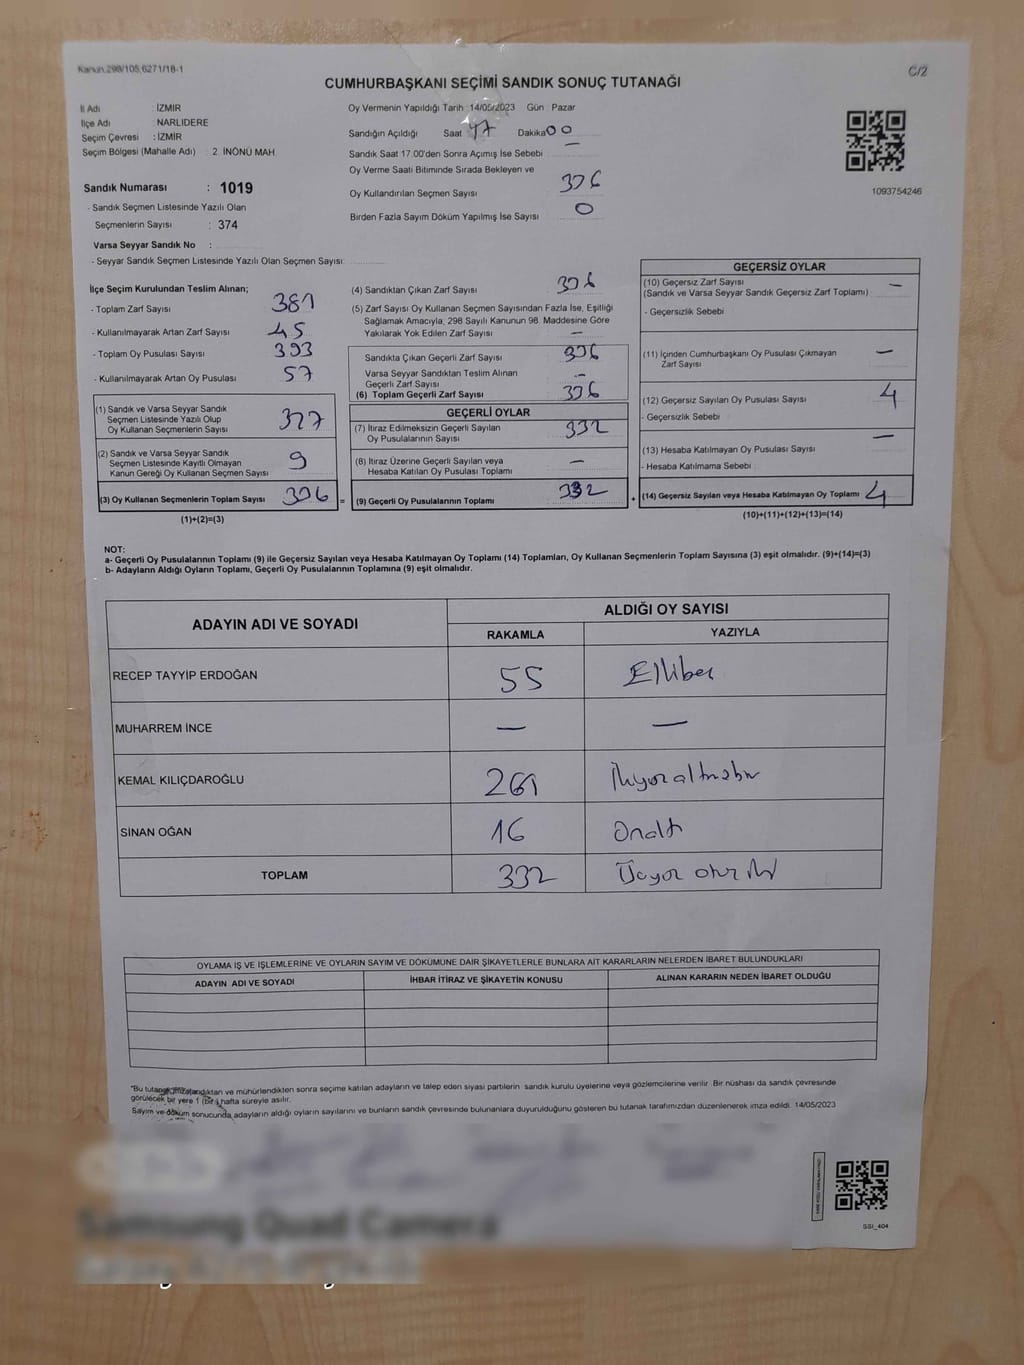 Kanun.298/105,6271/18-1
C/2
CUMHURBAŞKANI SEÇİMİ SANDIK SONUÇ TUTANAĞI
İl Adı : İZMİR
İlçe Adı : NARLIDERE
Seçim Çevresi : İZMİR
Seçim Bölgesi (Mahalle Adı) : 2. İNÖNÜ MAH.
Sandık Numarası : 1019
- Sandık Seçmen Listesinde Yazılı Olan
Seçmenlerin Sayısı : 374
Varsa Seyyar Sandık No :
- Seyyar Sandık Seçmen Listesinde Yazılı Olan Seçmen Sayısı:
Oy Vermenin Yapıldığı Tarih 14/05/2023 Gün Pazar
Sandığın Açıldığı Saat 17 Dakika 00
Sandık Saat 17.00'den Sonra Açımış İse Sebebi —
Oy Verme Saati Bitiminde Sırada Bekleyen ve
Oy Kullandırılan Seçmen Sayısı 336
Birden Fazla Sayım Döküm Yapılmış İse Sayısı 0
1093754246
İlçe Seçim Kurulundan Teslim Alınan;
- Toplam Zarf Sayısı 381
- Kullanılmayarak Artan Zarf Sayısı 45
- Toplam Oy Pusulası Sayısı 393
- Kullanılmayarak Artan Oy Pusulası 57
(1) Sandık ve Varsa Seyyar Sandık
Seçmen Listesinde Yazılı Olup
Oy Kullanan Seçmenlerin Sayısı 327
(2) Sandık ve Varsa Seyyar Sandık
Seçmen Listesinde Kayıtlı Olmayan
Kanun Gereği Oy Kullanan Seçmen Sayısı 9
(3) Oy Kullanan Seçmenlerin Toplam Sayısı 336 =
(1)+(2)=(3)
(4) Sandıktan Çıkan Zarf Sayısı 336
(5) Zarf Sayısı Oy Kullanan Seçmen Sayısından Fazla İse, Eşitliği
Sağlamak Amacıyla, 298 Sayılı Kanunun 98. Maddesine Göre
Yakılarak Yok Edilen Zarf Sayısı —
Sandıkta Çıkan Geçerli Zarf Sayısı 336
Varsa Seyyar Sandıktan Teslim Alınan
Geçerli Zarf Sayısı —
(6) Toplam Geçerli Zarf Sayısı 336
GEÇERLİ OYLAR
(7) İtiraz Edilmeksizin Geçerli Sayılan
Oy Pusulalarının Sayısı 332
(8) İtiraz Üzerine Geçerli Sayılan veya
Hesaba Katılan Oy Pusulası Toplamı —
(9) Geçerli Oy Pusulalarının Toplamı 332 +
GEÇERSİZ OYLAR
(10) Geçersiz Zarf Sayısı —
(Sandık ve Varsa Seyyar Sandık Geçersiz Zarf Toplamı)
- Geçersizlik Sebebi
(11) İçinden Cumhurbaşkanı Oy Pusulası Çıkmayan
Zarf Sayısı —
(12) Geçersiz Sayılan Oy Pusulası Sayısı 4
- Geçersizlik Sebebi
(13) Hesaba Katılmayan Oy Pusulası Sayısı —
- Hesaba Katılmama Sebebi
(14) Geçersiz Sayılan veya Hesaba Katılmayan Oy Toplamı 4
(10)+(11)+(12)+(13)=(14)
NOT:
a- Geçerli Oy Pusulalarının Toplamı (9) ile Geçersiz Sayılan veya Hesaba Katılmayan Oy Toplamı (14) Toplamları, Oy Kullanan Seçmenlerin Toplam Sayısına (3) eşit olmalıdır. (9)+(14)=(3)
b- Adayların Aldığı Oyların Toplamı, Geçerli Oy Pusulalarının Toplamına (9) eşit olmalıdır.
ADAYIN ADI VE SOYADI ALDIĞI OY SAYISI
RAKAMLA YAZIYLA
RECEP TAYYİP ERDOĞAN 55 Ellibeş
MUHARREM İNCE — —
KEMAL KILIÇDAROĞLU 261 İkiyüzaltmışbir
SİNAN OĞAN 16 Onaltı
TOPLAM 332 Üçyüz otuz iki
OYLAMA İŞ VE İŞLEMLERİNE VE OYLARIN SAYIM VE DÖKÜMÜNE DAİR ŞİKAYETLERLE BUNLARA AİT KARARLARIN NELERDEN İBARET BULUNDUKLARI
ADAYIN ADI VE SOYADI İHBAR İTİRAZ VE ŞİKAYETİN KONUSU ALINAN KARARIN NEDEN İBARET OLDUĞU
"Bu tutanak imzalandıktan ve mühürlendikten sonra seçime katılan adayların ve talep eden siyasi partilerin sandık kurulu üyelerine veya gözlemcilerine verilir. Bir nüshası da sandık çevresinde
görülecek bir yere 1 (bir) hafta süreyle asılır.
Sayım ve döküm sonucunda adayların aldığı oyların sayılarını ve bunların sandık çevresinde bulunanlara duyurulduğunu gösteren bu tutanak tarafımızdan düzenlenerek imza edildi. 14/05/2023
Samsung Quad Camera
SSI_404